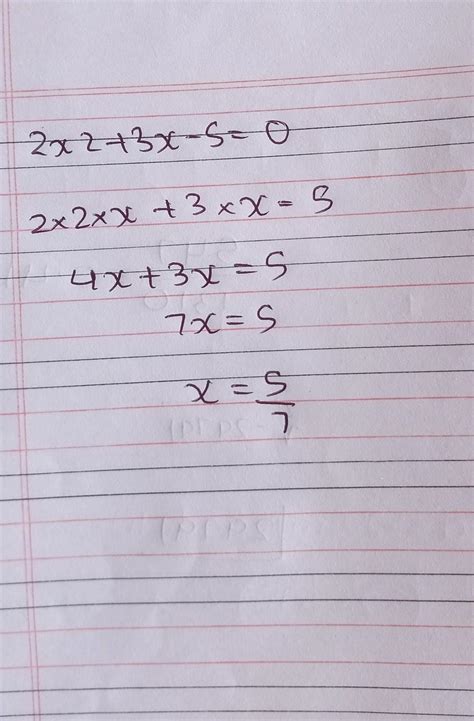 2x2+3x-5=0
2×2×x + 3×x = 5
4x+3x = 5
7x = 5
x = 5/7